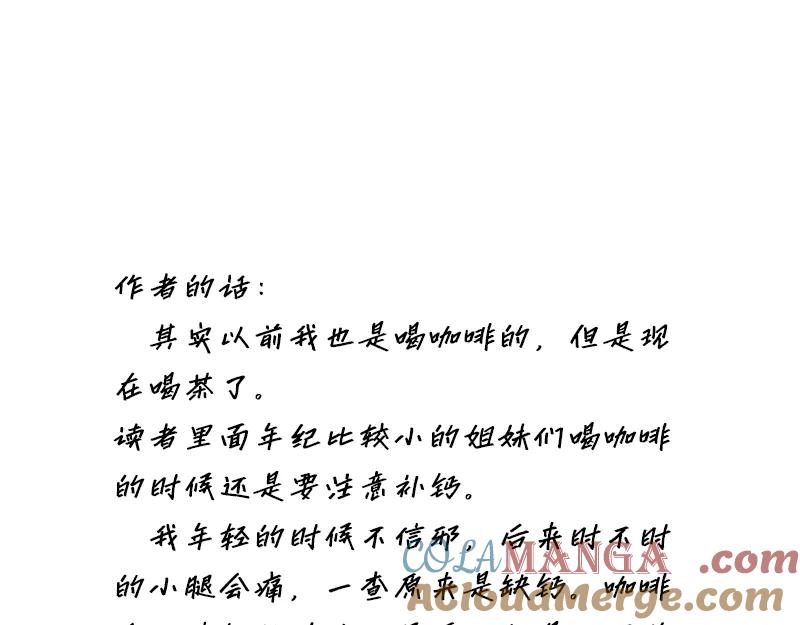 作者的话：
其实以前我也是喝咖啡的，但是现
在喝茶了。
读者里面年纪比较小的姐妹们喝咖啡
的时候还是要注意补钙。
我年轻的时候不信邪，后来时不时
的小腿会痛，一查原来是缺钙。咖啡
COLAMANGA.com
AcloudMerge.com